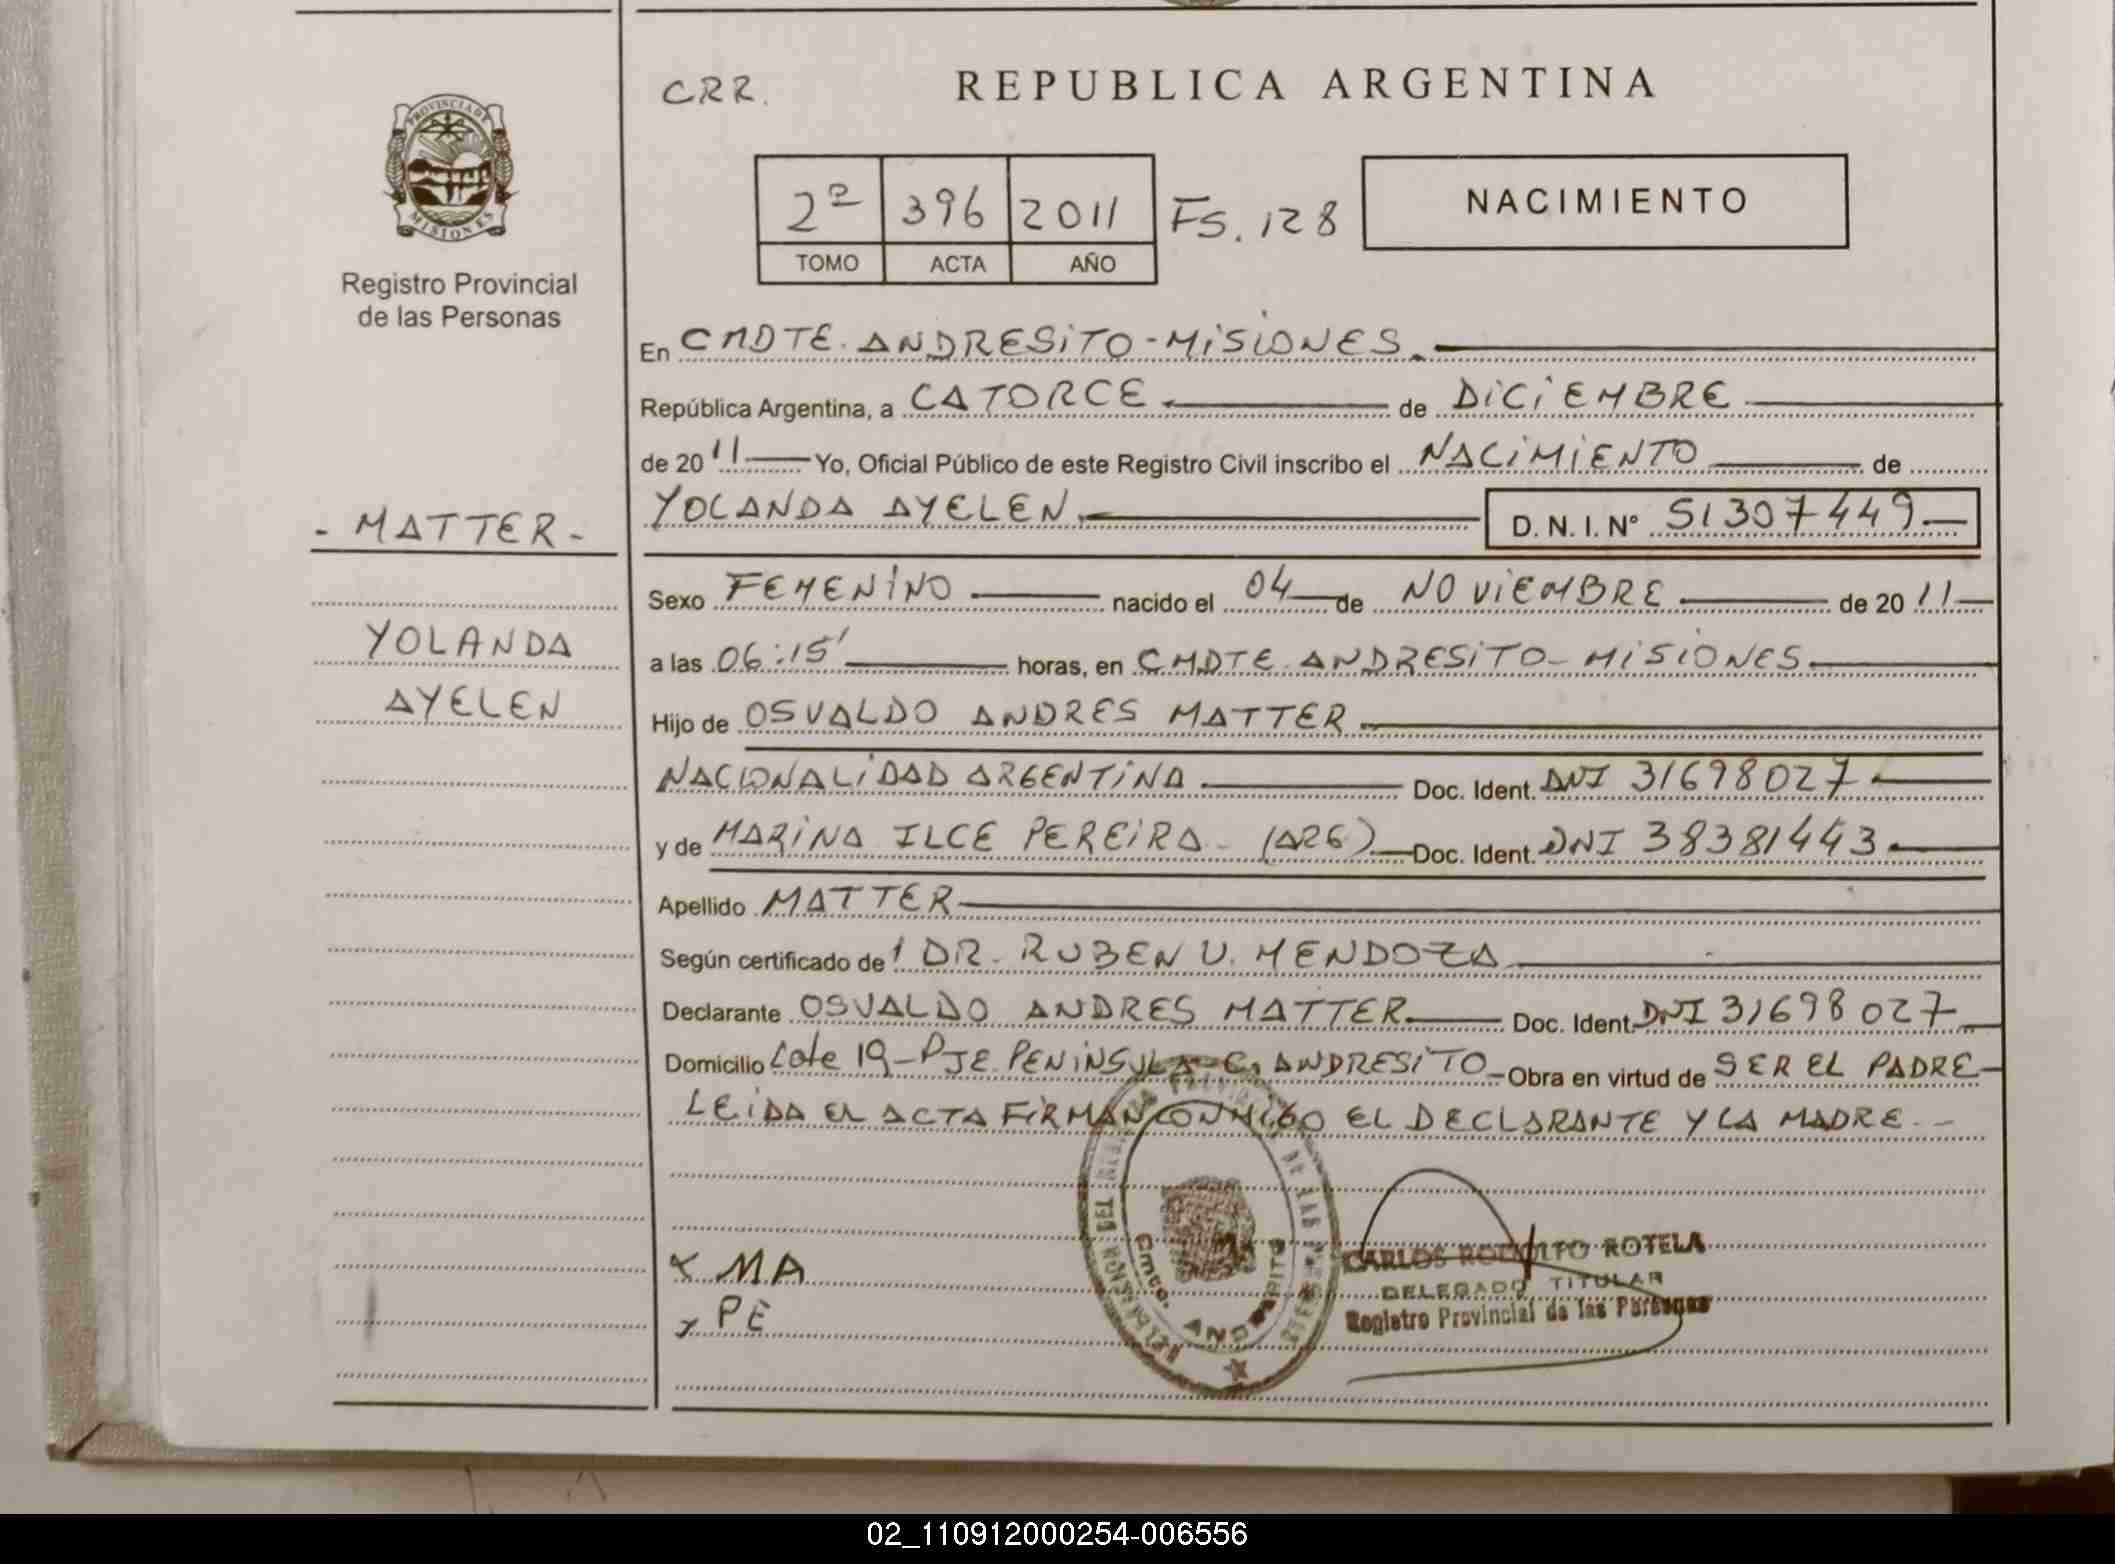 CRR.
REPUBLICA ARGENTINA
PROVINCIA DE
MISIONES
2º 396 2011 FS. 128
TOMO ACTA AÑO
NACIMIENTO
Registro Provincial
de las Personas
En CMDTE. ANDRESITO - MISIONES.
República Argentina, a CATORCE de DICIEMBRE
de 2011 Yo, Oficial Público de este Registro Civil inscribo el NACIMIENTO de
- MATTER -
YOLANDA AYELEN. D. N. I. Nº 51307449
Sexo FEMENINO nacido el 04 de NOVIEMBRE de 2011
YOLANDA
AYELEN
a las 06:15' horas, en CMDTE. ANDRESITO - MISIONES.
Hijo de OSVALDO ANDRES MATTER
NACIONALIDAD ARGENTINA Doc. Ident. DNI 31698027
y de MARINA ILCE PEREIRA - (ARG) Doc. Ident. DNI 38381443
Apellido MATTER
Según certificado de DR. RUBEN U. MENDOZA
Declarante OSVALDO ANDRES MATTER Doc. Ident. DNI 31698027
Domicilio Lote 19 - PJE. PENINSULA - C. ANDRESITO - Obra en virtud de SER EL PADRE -
LEIDA EL ACTA FIRMAN CONMIGO EL DECLARANTE Y LA MADRE. -
X MA
X PE
CARLOS RODOLFO ROTELA
DELEGADO TITULAR
Registro Provincial de las Personas
02_110912000254-006556